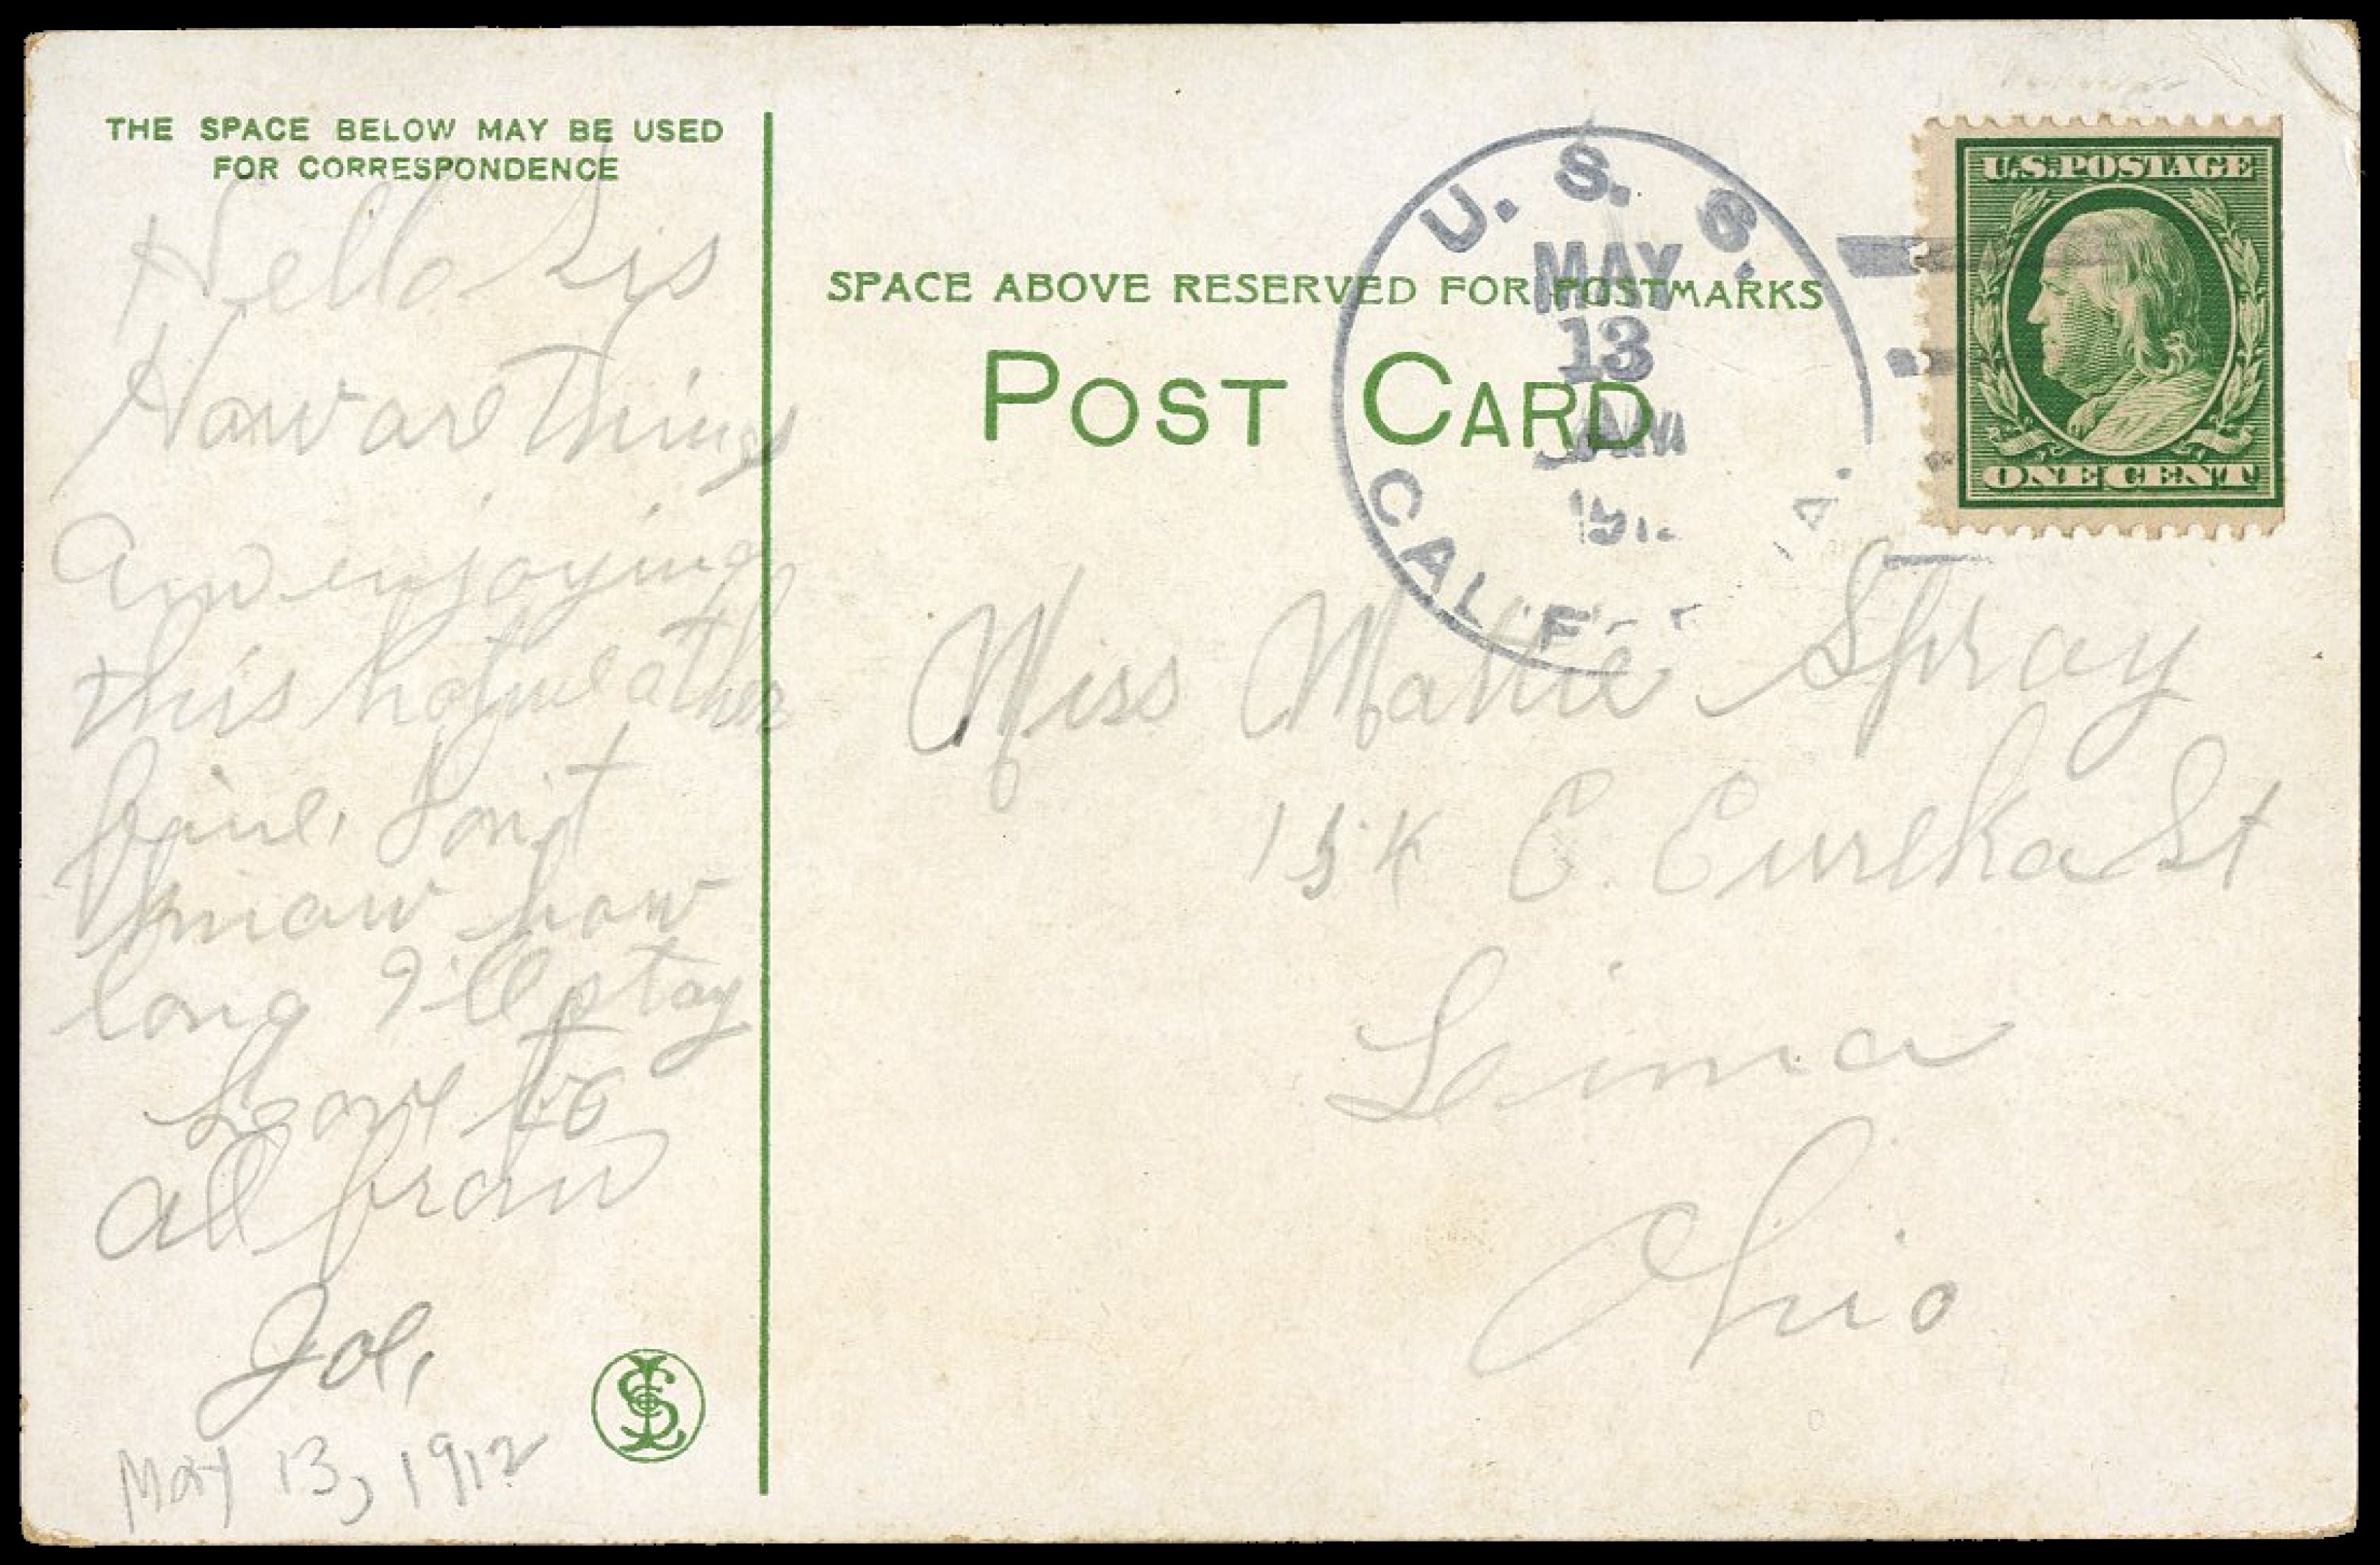 THE SPACE BELOW MAY BE USED
FOR CORRESPONDENCE
Hello Sis
How are things
Am enjoying
this hot weather
fine. Don't
know how
long I'll stay
Love to
all from
Joe,
May 13, 1912
U. S. S.
MAY
13
AM
191
CALIF IA.
SPACE ABOVE RESERVED FOR POSTMARKS
POST CARD
U.S. POSTAGE
ONE CENT
Miss Mattie Spray
E. Eureka St
Lima
Ohio